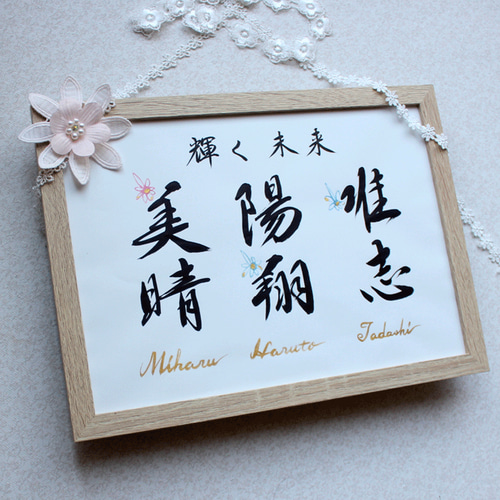 輝く未来
美晴
陽翔
唯志
Miharu
Haruto
Tadashi